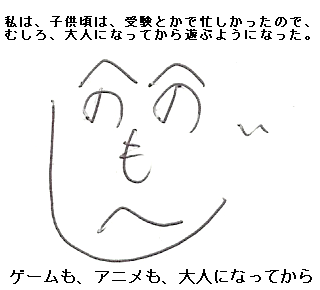 私は、子供頃は、受験とかで忙しかったので、
むしろ、大人になってから遊ぶようになった。
へ へ
の の
も い
へ
ゲームも、アニメも、大人になってから